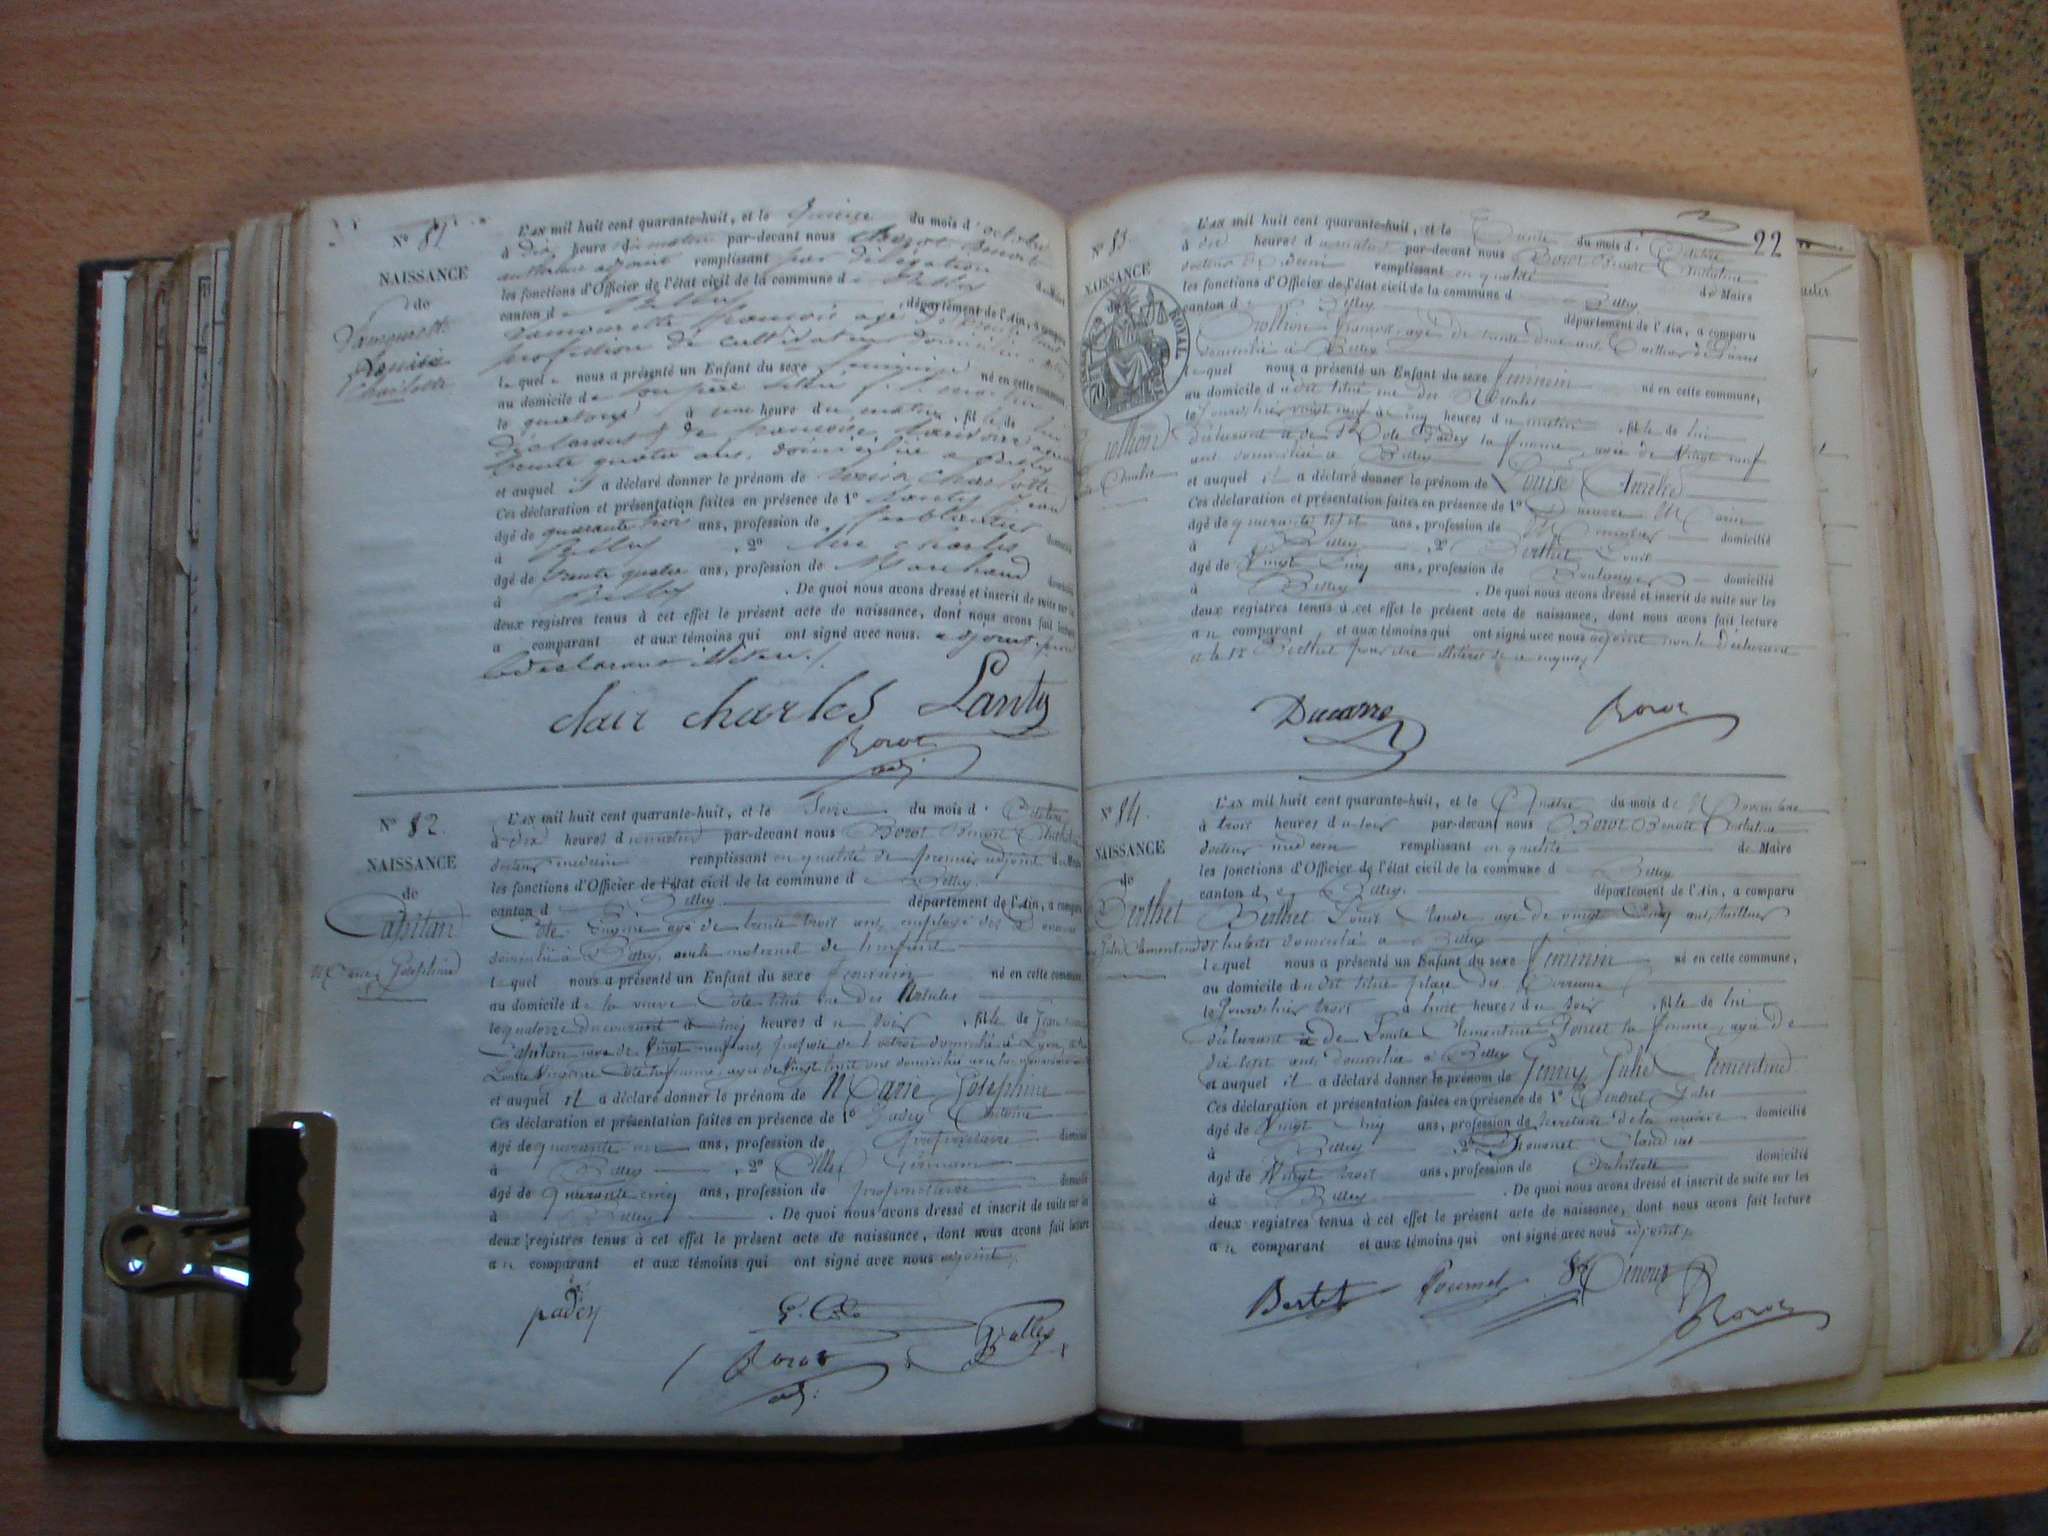 N° 81
NAISSANCE
de
Louise
Charlotte
L'AN mil huit cent quarante-huit, et le quinze du mois d'octobre
à dix heures du matin par-devant nous Borot Benoit
anthelme adjoint remplissant par délégation
les fonctions d'Officier de l'état civil de la commune de Belley
canton de Belley, département de l'Ain, a comparu
françois agé de trente
profession de cultivateur domicilié à
lequel nous a présenté un Enfant du sexe féminin né en cette commune,
au domicile de son père
le quatorze à une heure du matin, fille de lui
déclarant & de françoise
trente quatre ans, domiciliée a Belley
et auquel il a déclaré donner le prénom de Louise Charlotte
Ces déclaration et présentation faites en présence de 1° Lanty Jean
âgé de quarante trois ans, profession de ferblantier domicilié
à Belley, 2° clair charles
âgé de trente quatre ans, profession de Marchand domicilié
à Belley. De quoi nous avons dressé et inscrit de suite sur les
deux registres tenus à cet effet le présent acte de naissance, dont nous avons fait lecture
a comparant et aux témoins qui ont signé avec nous. adjoint
le déclarant
clair charles Lanty
Borot
adj.
N° 82.
NAISSANCE
de
Capitan
Marie Joséphine
L'AN mil huit cent quarante-huit, et le Seize du mois d'Octobre
à dix heures du matin par-devant nous Borot Benoit Anthelme
docteur medecin remplissant en qualité de premier adjoint du Maire
les fonctions d'Officier de l'état civil de la commune de Belley
canton de Belley. département de l'Ain, a comparu
Cote Eugène agé de trente trois ans, employé des
domicilié à Belley, oncle maternel de l'enfant
lequel nous a présenté un Enfant du sexe féminin né en cette commune
au domicile de la veuve Cote situé rue des Morales
le quatorze du courant à cinq heures du soir, fille de
Capitan agé de vingt neuf ans, préposé de l'octroi domicilié à Lyon,
Louise Virginie Cote sa femme, agée de vingt huit ans domiciliée avec
et auquel il a déclaré donner le prénom de Marie Joséphine
Ces déclaration et présentation faites en présence de 1° Padey Antoine
âgé de quarante ans, profession de propriétaire domicilié
à Belley, 2°
âgé de quarante cinq ans, profession de propriétaire domicilié
à Belley. De quoi nous avons dressé et inscrit de suite sur les
deux registres tenus à cet effet le présent acte de naissance, dont nous avons fait lecture
au comparant et aux témoins qui ont signé avec nous adjoint
padey
E. Cote
Borot
adj.
22
N° 83.
NAISSANCE
ROYAL
L'AN mil huit cent quarante-huit, et le trente du mois d'Octobre
à dix heures du matin par-devant nous Borot Benoit Anthelme
docteur medecin remplissant en qualité de Maire
les fonctions d'Officier de l'état civil de la commune d Belley
canton d Belley département de l'Ain, a comparu
François, agé de trente deux ans, tailleur de pierres
domicilié à Belley
lequel nous a présenté un Enfant du sexe féminin né en cette commune,
au domicile du dit situé rue des Morales
le jour d'hier vingt neuf à cinq heures du matin, fille de lui
déclarant & de Padey sa femme, agée de vingt neuf
ans domiciliée à Belley
et auquel il a déclaré donner le prénom de Louise Amélie
Ces déclaration et présentation faites en présence de 1° Ducarre Marin
âgé de quarante sept ans, profession de Menuisier domicilié
à Belley, 2° Berthet Louis
âgé de vingt cinq ans, profession de Boulanger domicilié
à Belley. De quoi nous avons dressé et inscrit de suite sur les
deux registres tenus à cet effet le présent acte de naissance, dont nous avons fait lecture
au comparant et aux témoins qui ont signé avec nous adjoint non le déclarant
et le Sr Berthet pour être illitérés de ce enquis
Ducarre Borot
N° 84.
NAISSANCE
de
Berthet
Julie Clémentine
L'AN mil huit cent quarante-huit, et le Quatre du mois de Novembre
à trois heures du soir par-devant nous Borot Benoit Anthelme
docteur medecin remplissant en qualité de Maire
les fonctions d'Officier de l'état civil de la commune d Belley
canton de Belley. département de l'Ain, a comparu
Berthet Louis Claude agé de vingt cinq ans, tailleur
d'habits domicilié à Belley
lequel nous a présenté un Enfant du sexe féminin né en cette commune,
au domicile du dit situé place des Terreaux
le jour d'hier trois à huit heures du soir, fille de lui
déclarant & de Louise Clementine sa femme, agée de
dix sept ans, domiciliée à Belley
et auquel il a déclaré donner le prénom de Jenny Julie Clementine
Ces déclaration et présentation faites en présence de 1°
âgé de vingt cinq ans, profession de secrétaire de la mairie domicilié
à Belley 2° Fournet Claudius
âgé de vingt trois ans, profession de Architecte domicilié
à Belley. De quoi nous avons dressé et inscrit de suite sur les
deux registres tenus à cet effet le présent acte de naissance, dont nous avons fait lecture
au comparant et aux témoins qui ont signé avec nous adjoint
Bertet Fournet
Borot